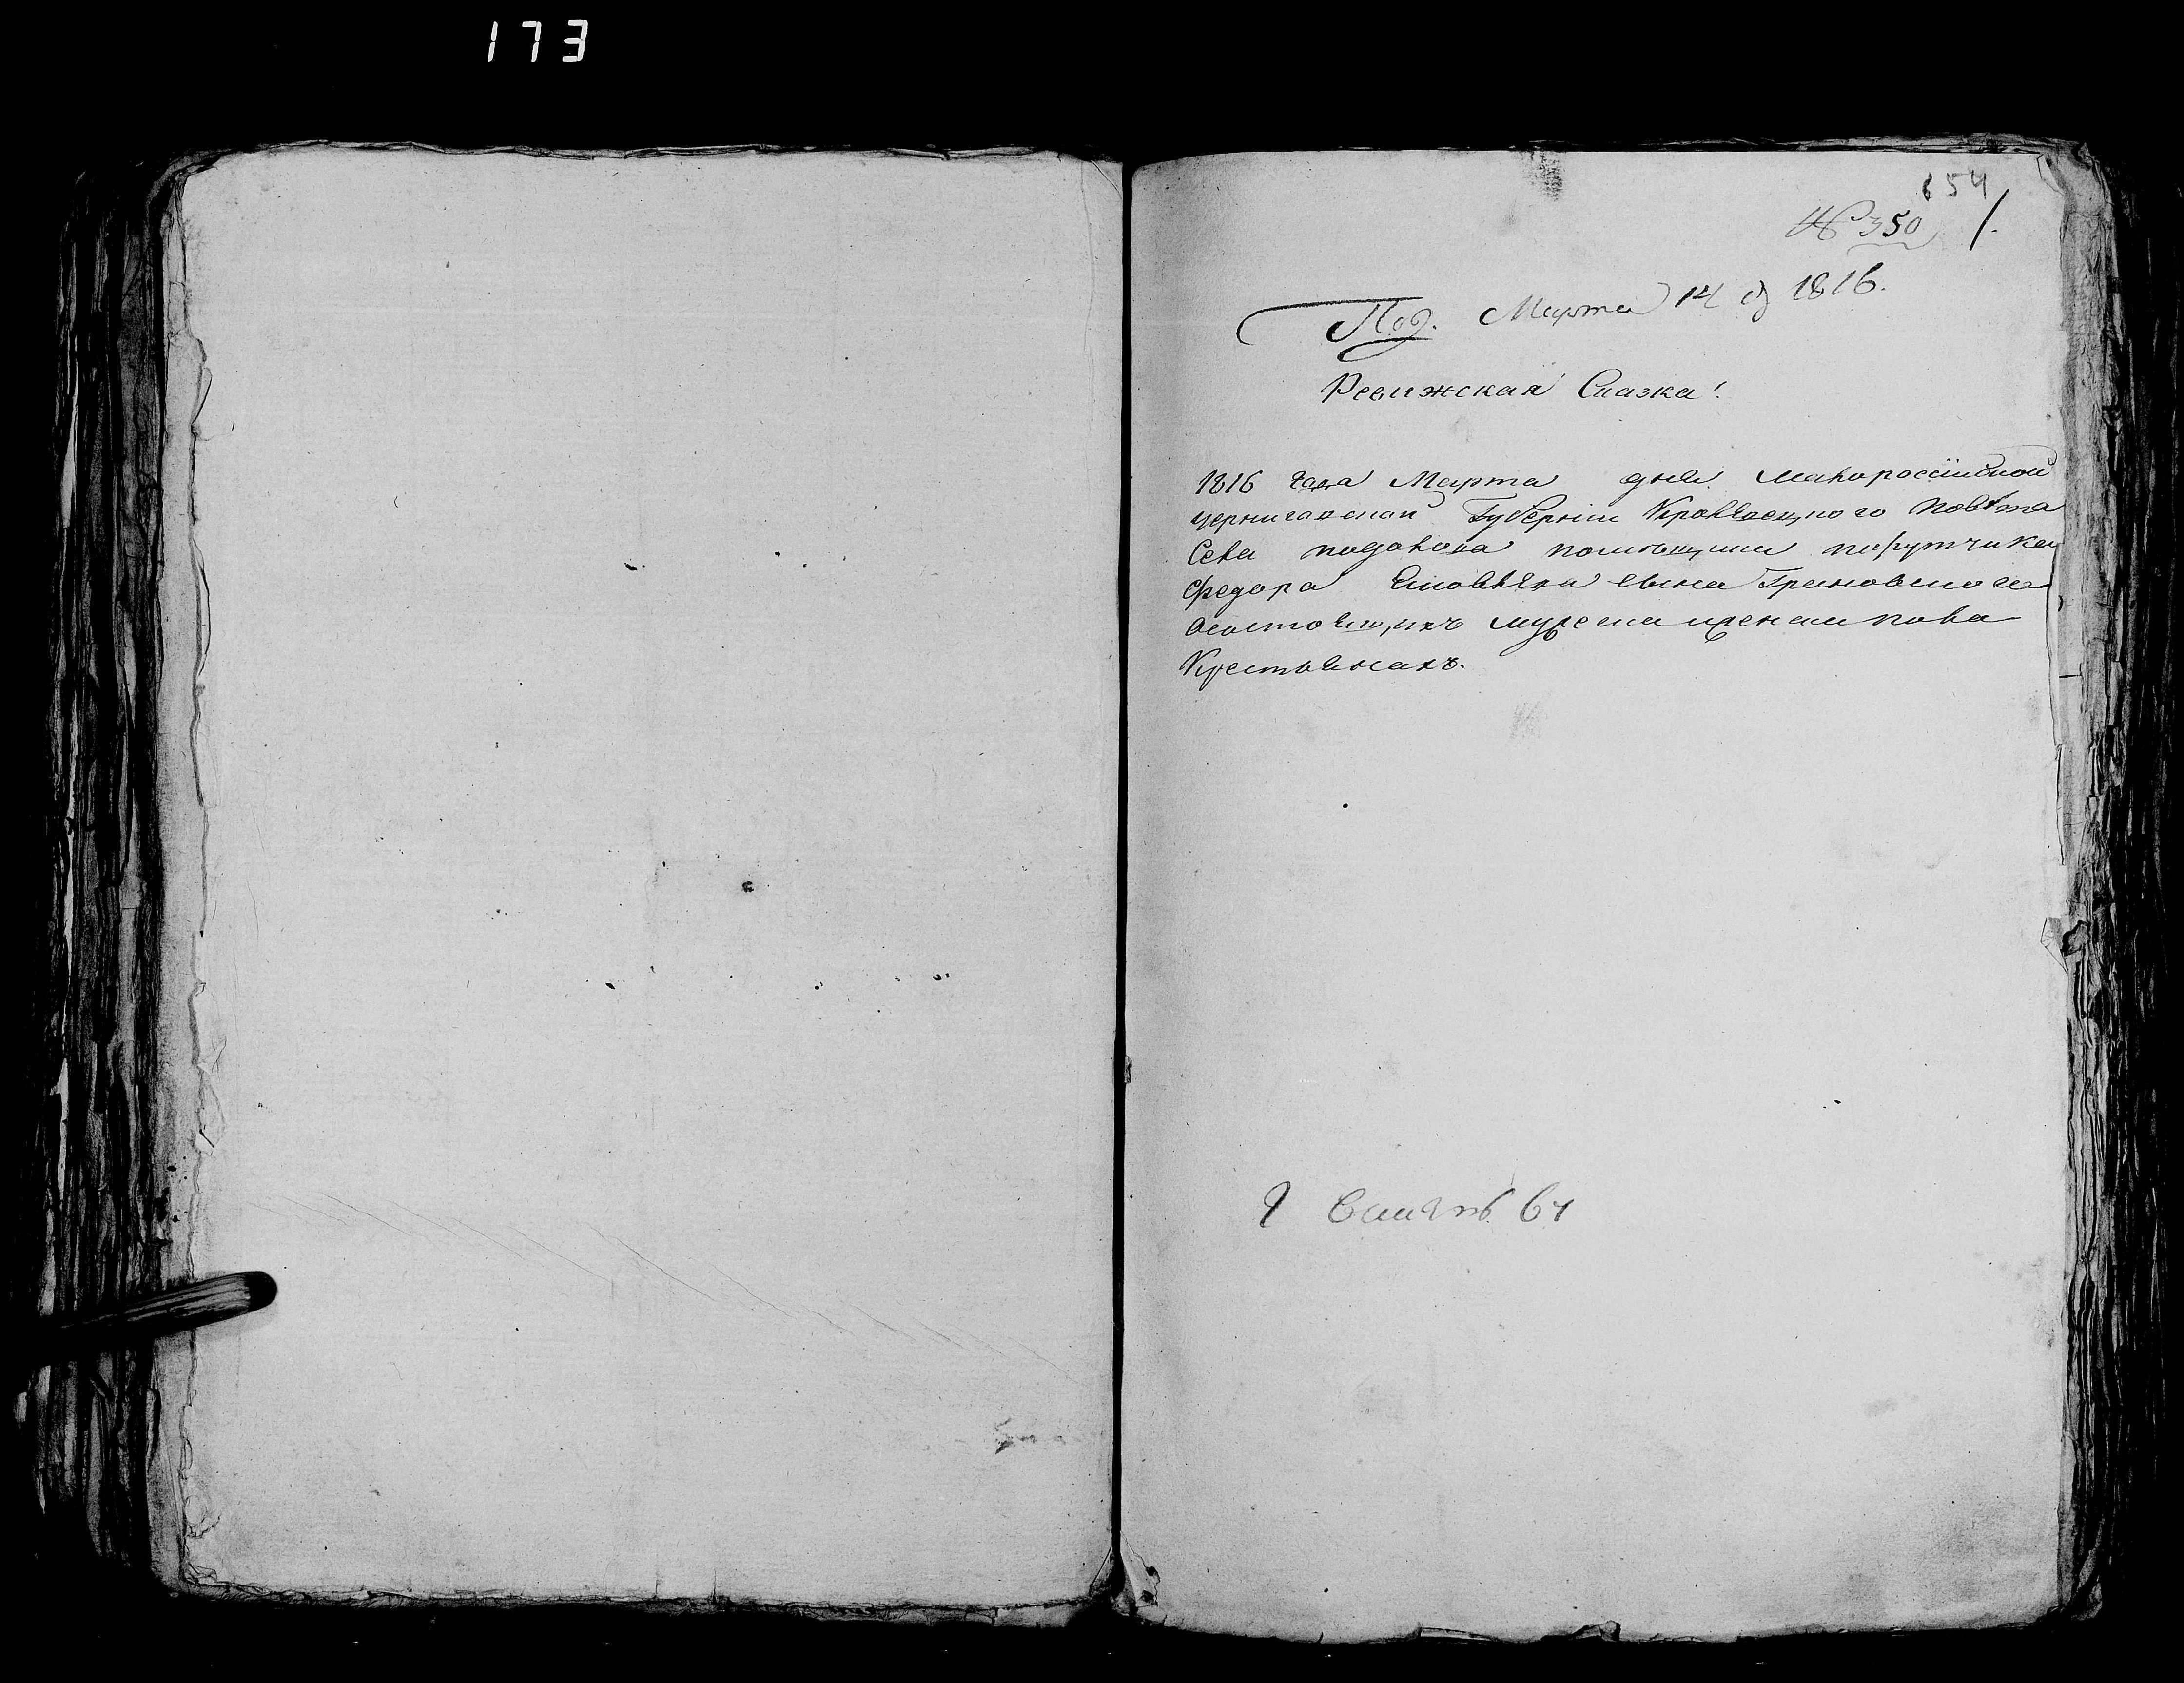 173
654
№ 350 1.
Под. Марта 14 д 1816.
Ревижская Сказка.
1816 года Марта дня Малороссийской
черниговской Губернии Кролевецкого повѣта
Села подолова помѣщика порутчика
Федора сына
Осостоящихъ мужеска иженска пола
Крестьянахъ.
64